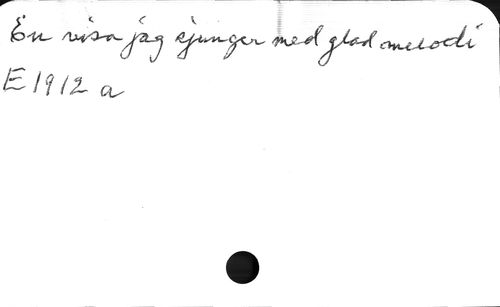 En visa jag sjunger med glad melodi
E 1912 a